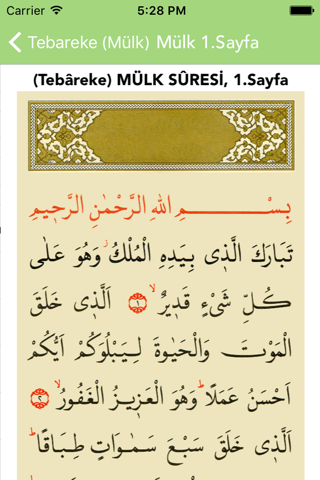 Carrier 5:28 PM
Tebareke (Mülk) Mülk 1.Sayfa
(Tebâreke) MÜLK SÛRESİ, 1.Sayfa
بِسْــــــمِ اللهِ الرَّحْمٰنِ الرَّح۪يمِ
تَبَارَكَ الَّذ۪ي بِيَدِهِ الْمُلْكُۘ وَهُوَ عَلٰى
كُلِّ شَيْءٍ قَد۪يرٌۙ ﴿١﴾ اَلَّذ۪ي خَلَقَ
الْمَوْتَ وَالْحَيٰوةَ لِيَبْلُوَكُمْ اَيُّكُمْ
اَحْسَنُ عَمَلًاۜ وَهُوَ الْعَز۪يزُ الْغَفُورُۙ ﴿٢﴾
اَلَّذ۪ي خَلَقَ سَبْعَ سَمٰوَاتٍ طِبَاقًاۜ